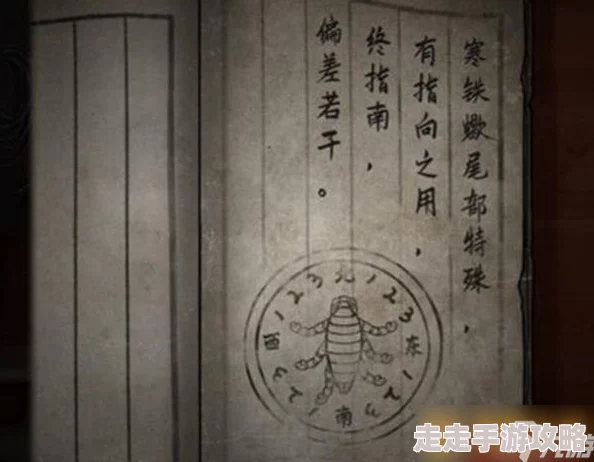 寒铁蠍尾部特殊，
有指向之用，
终指南，
偏差若干。
北 1 2 3
东 1 2 3
南 1 2 3
西 1 2 3
走走手游攻略